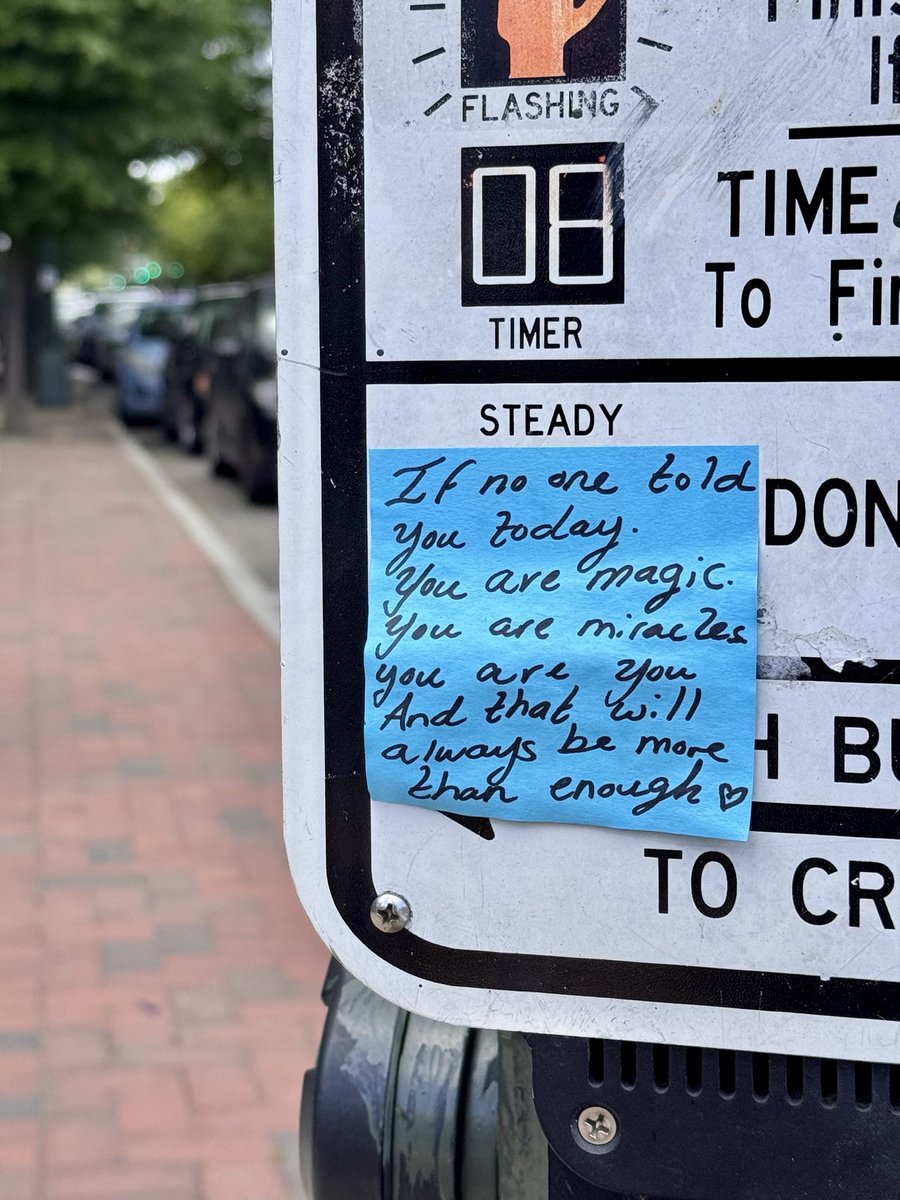 FLASHING
08
TIME
To
TIMER
STEADY
DON
If no one told
you today.
You are magic.
You are miracles
you are you
And that will
always be more
than enough ♡
H BU
TO CR